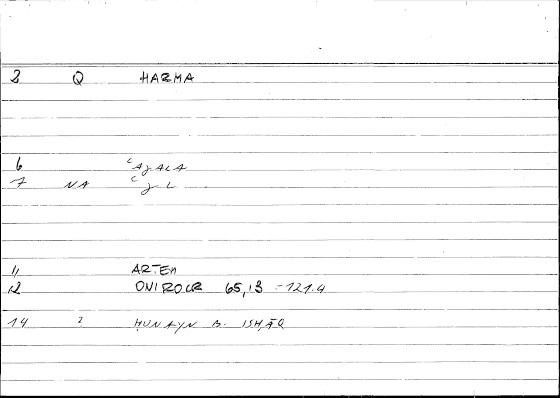 3 Q HARMA
6 ʿAJALA
7 NA ʿJL
11 ARTEM
12 ONIROCR 65,13 = 121.4
14 2 ḤUNAYN B. ISḤĀQ